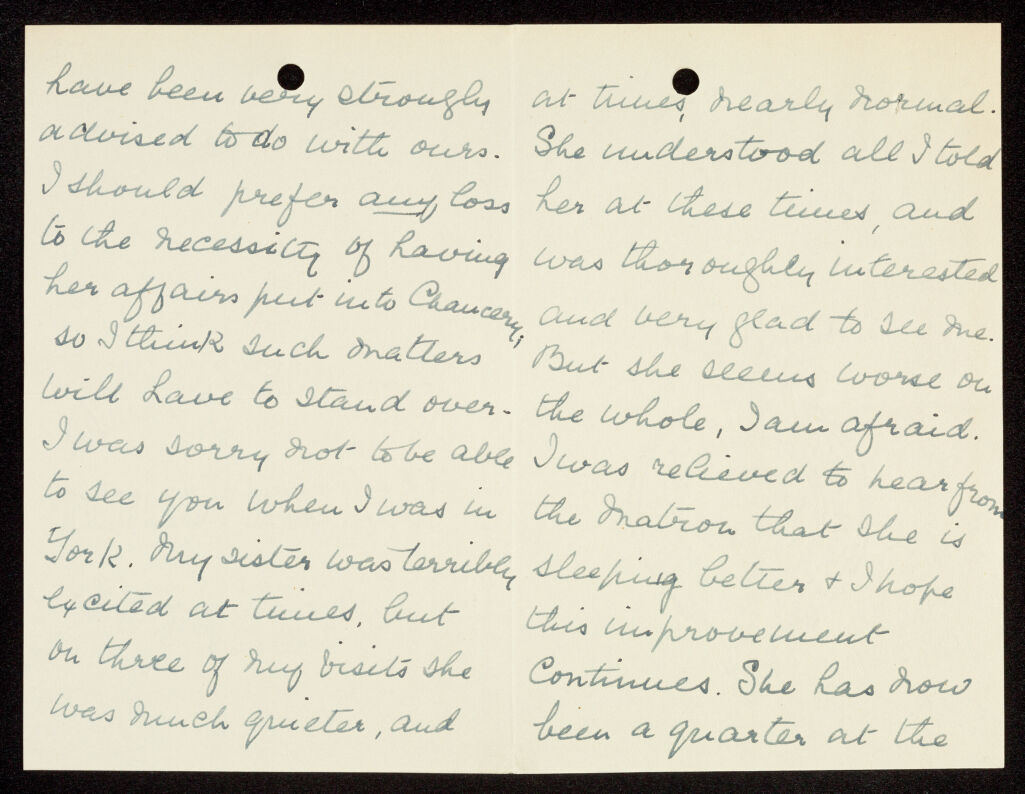 have been very strongly
advised to do with ours.
I should prefer any loss
to the necessity of having
her affairs put into Chancery,
so I think such matters
will have to stand over.
I was sorry not to be able
to see you when I was in
York. My sister was terribly
excited at times, but
on three of my visits she
was much quieter, and
at times, nearly normal.
She understood all I told
her at these times, and
was thoroughly interested
and very glad to see me.
But she seems worse on
the whole, I am afraid.
I was relieved to hear from
the Matron that she is
sleeping better & I hope
this improvement
continues. She has now
been a quarter at the